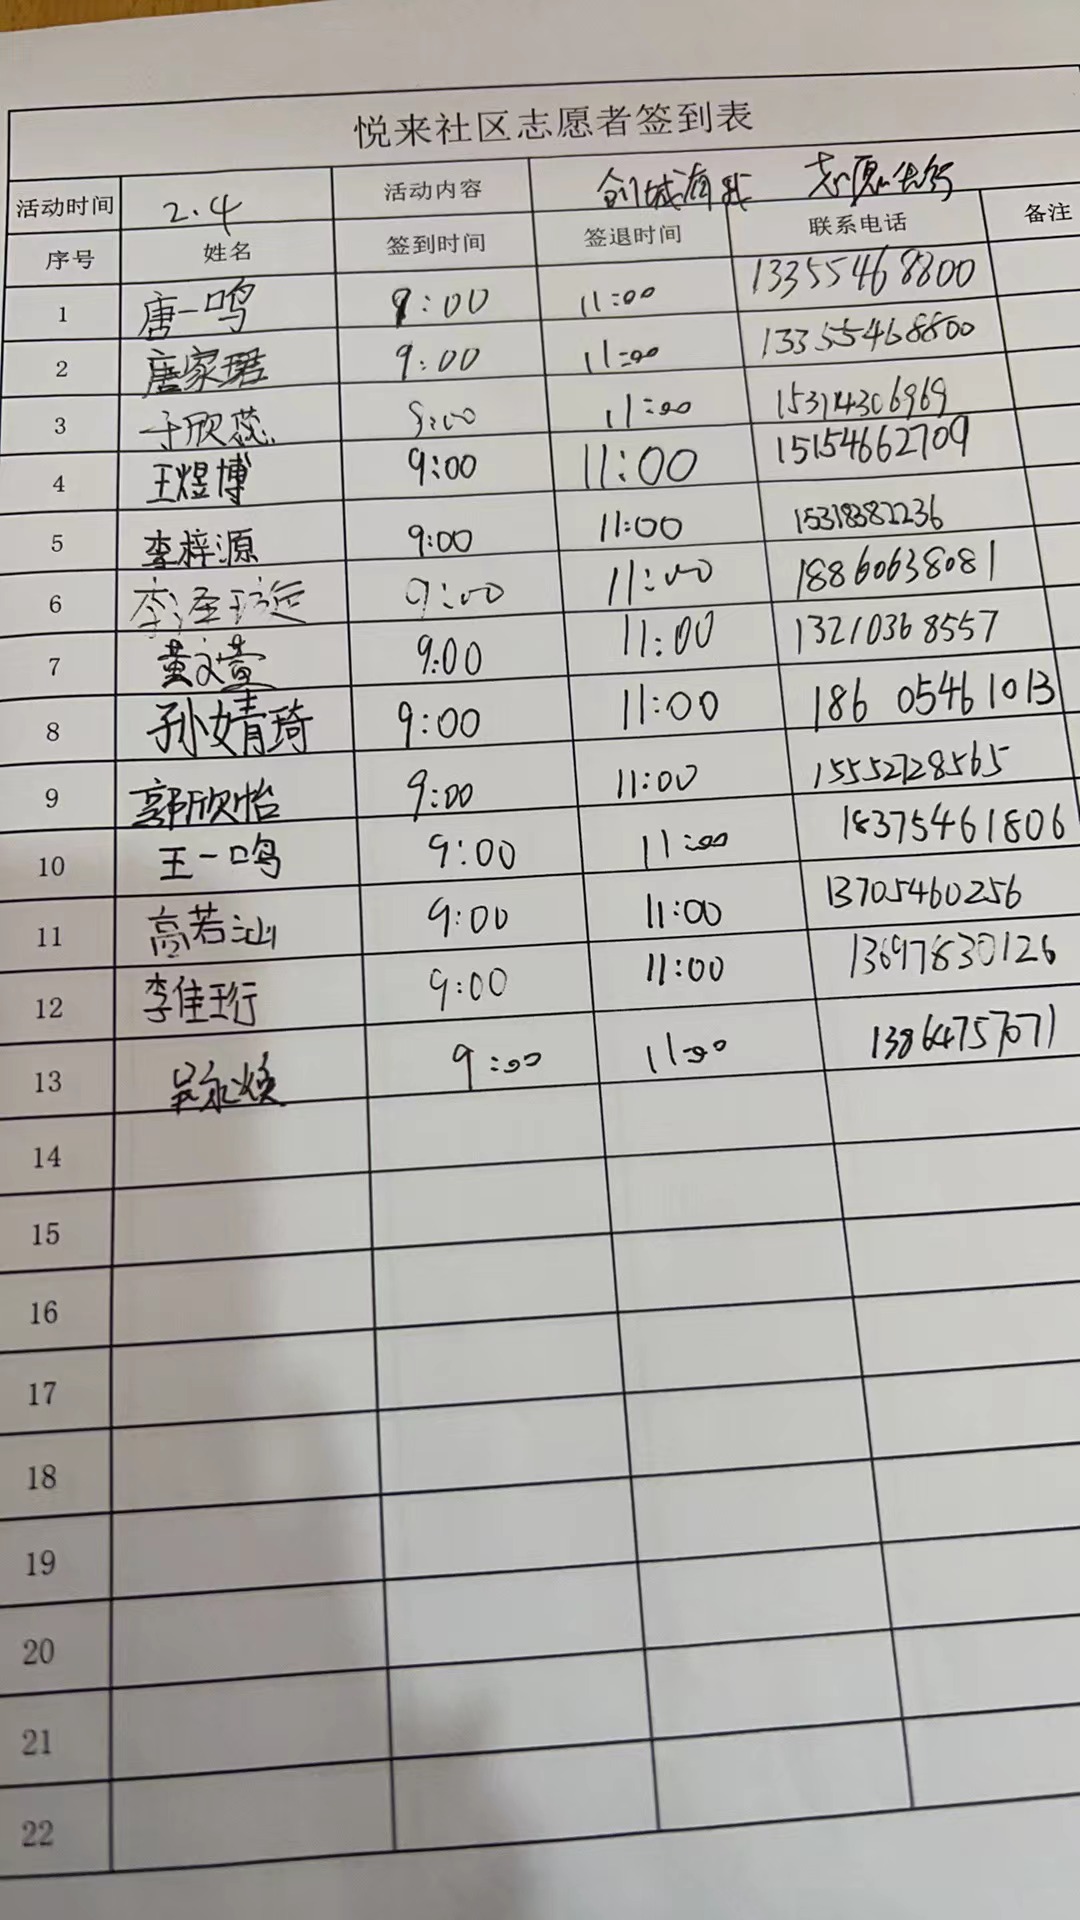 悦来社区志愿者签到表
活动时间 2.4 活动内容 创城有我 志愿先行
序号 姓名 签到时间 签退时间 联系电话 备注
1 唐一鸣 9:00 11:00 13355468800
2 唐家珺 9:00 11:00 13355468800
3 于欣蕊 9:00 11:00 15314306969
4 王煜博 9:00 11:00 15154662709
5 李梓源 9:00 11:00 15318382236
6 李泽 9:00 11:00 18860638081
7 黄文萱 9:00 11:00 13210368557
8 孙婧琦 9:00 11:00 186 0546 1013
9 郭欣怡 9:00 11:00 15552728565
10 王一鸣 9:00 11:00 18375461806
11 高若汕 9:00 11:00 13705460256
12 李佳珩 9:00 11:00 13697830126
13 吴永焕 9:00 11:00 13864757071
14
15
16
17
18
19
20
21
22